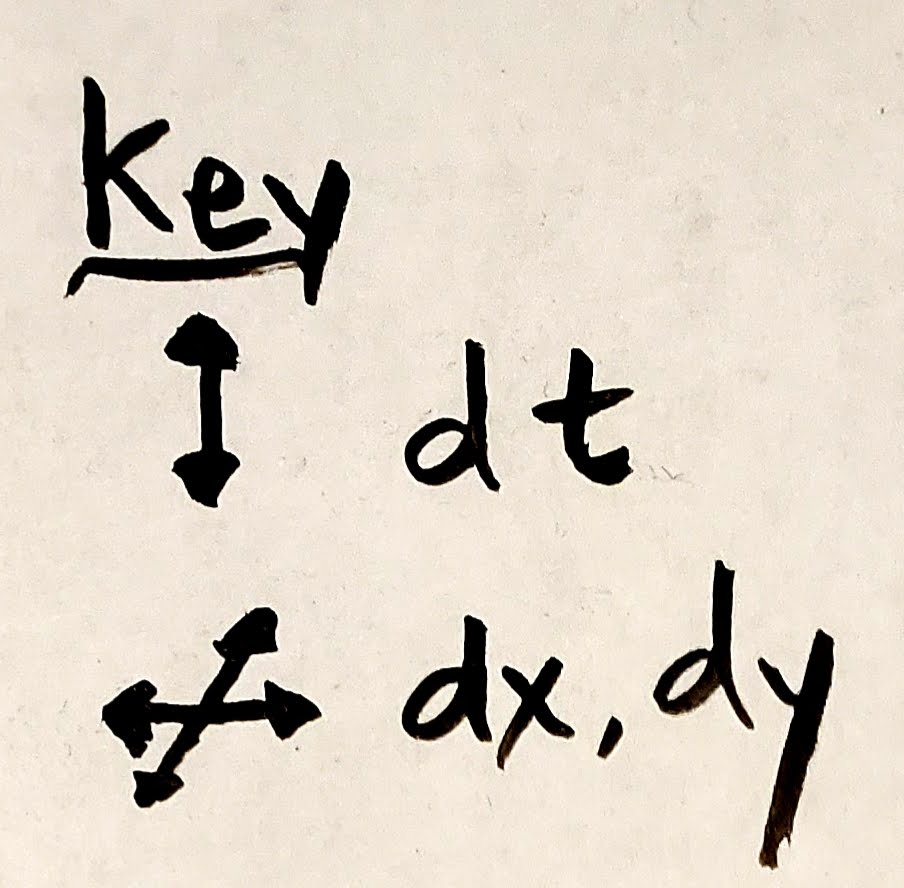 Key
dt
dx, dy